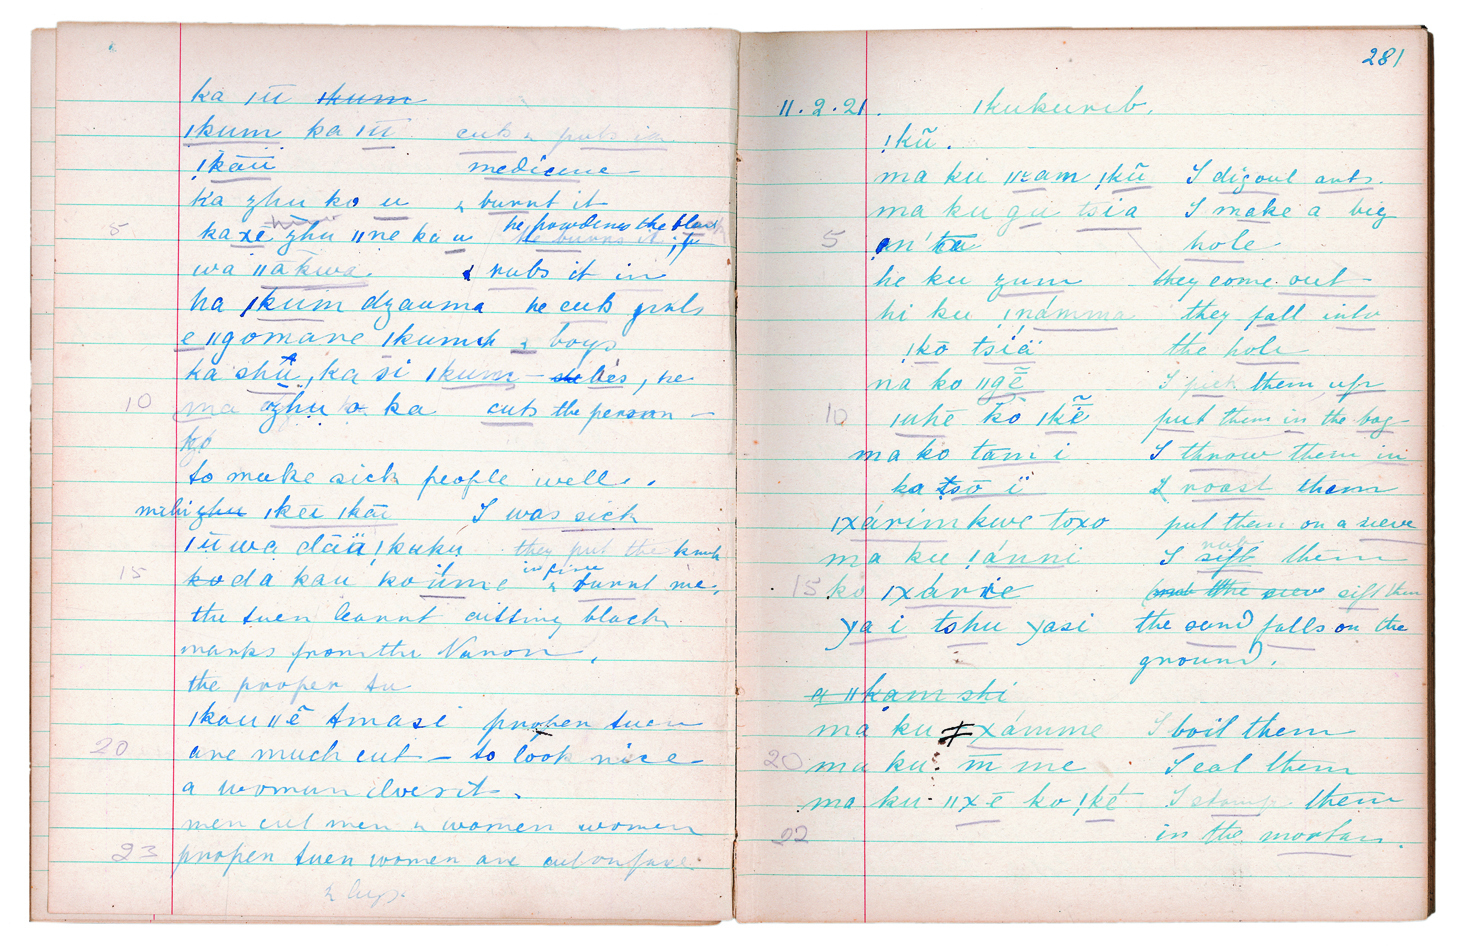 ka ǀīī ǀkum
ǀkum ka ǀīī cuts & puts in
ǀkāü medicine -
ka zhu ko u & burnt it
5 ka xē zhu ǁne ka u he powders the black
he burns it
wa ǁakwa & rubs it in
ha ǀkum dzauma he cuts girls
e ǁgomane ǀkum & boys
ka shū, ka si ǀkum - she lies, he
10 ma zhu o ka cuts the person -
ko
to make sick people well.
mihi zhu ǀkei ǀkāi I was sick
ǀū wa dāä ǃkuku they put the knife
in fire
15 ko da kau ko ūme & burnt me.
the tuen learnt cutting black
marks from the Naron.
the proper tu
ǀkau ǁē tmasi proper tuen
20 are much cut - to look nice -
a woman does it.
men cut men & women women
23 proper tuen women are cut on face
& legs.
281
11.2.21. ǀkukurib.
ǃkũ.
ma ku ǁzam ǃkũ I dig out ants.
ma ku gu tsia I make a big
5 ǀn'ta hole
he ku zum they come out -
hi ku ǃnámma they fall into
ǃkō tsíä the hole
na ko ǁgẽ I pick them up
10 ǀuhē ko ǀkẽ put them in the bag
ma ko tam i I throw them in
ka tsō ï I roast them
ǀxárim kwe toxo put them on a sieve
rub
ma ku ǃánni I sift them
15 ko ǀxárie (rub the sieve sift them
ya i tshu yasi the sand falls on the
ground.
a ǁkam shi
ma ku ǂxámme I boil them
20 ma ku m̄ me I eat them
ma ku ǁxē ko ǃké I stamp them
22 in the mortar.